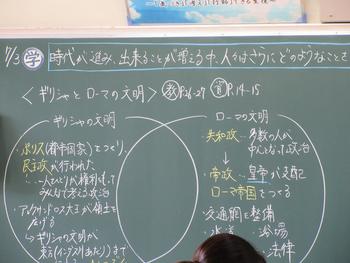 7/3 学 時代が進み、出来ることが増える中、人々はさらにどのようなことを
<ギリシャとローマの文明> 教P.26-27 資P.14-15
ギリシャの文明
・ポリス(都市国家)をつくり、
民主政が行われた
一人ひとりが権利をもって
みんなで考える政治
・アレクサンドロス大王が領土を
広げる
→ギリシャの文明が
東方(インダス川あたり)まで
ローマの文明
共和政…多数の人が
中心となって政治
↓
→帝政…皇帝が支配
ローマ帝国をつくる
・交通網を整備
・水道 ・浴場
・法律